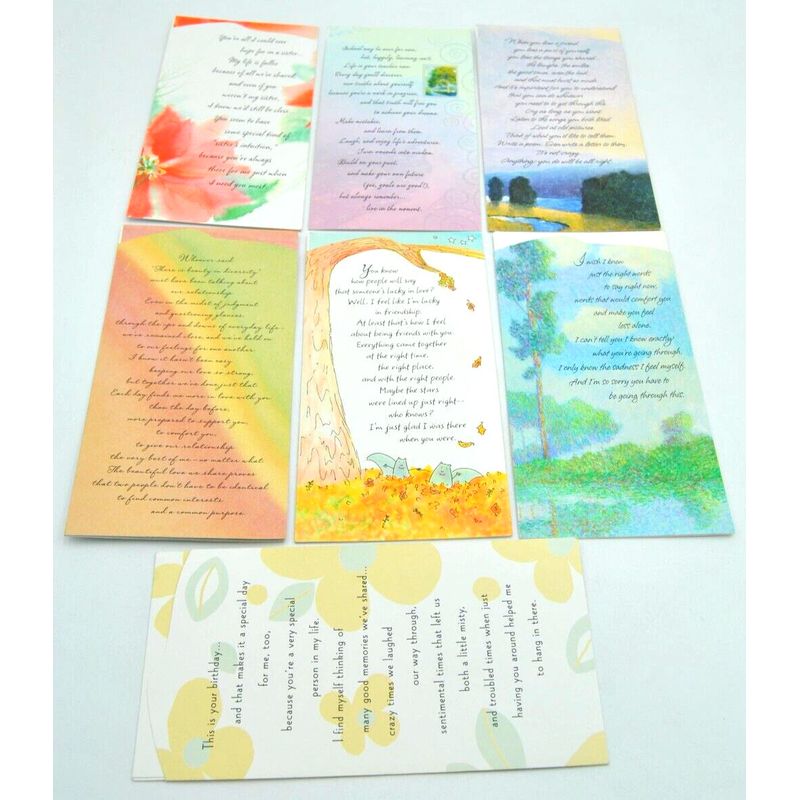 You're all I could ever
hope for in a sister...
My life is fuller
because of all we've shared
and even if you
weren't my sister,
I know we'd still be close.
You seem to have
some special kind of
"sister's intuition,"
because you're always
there for me just when
I need you most.
School may be over for now,
but, happily, learning isn't.
Life is your teacher now.
Every day you'll discover
new truths about yourself
because you're a work in progress,
and that truth will free you
to achieve your dreams.
Make mistakes,
and learn from them.
Laugh, and enjoy life's adventures.
Turn wounds into wisdom.
Build on your past,
and make your own future
(yes, goals are good!),
but always remember...
live in the moment.
"When you lose a friend
you lose a part of yourself,
you lose the things you shared,
the laughs, the smiles,
the good times, even the bad,
and that must hurt so much.
And it's important for you to understand
that you can do whatever
you need to to get through this.
Cry as long as you want.
Listen to the songs you both liked.
Look at old pictures.
Think of what you'd like to tell them.
Write a poem. Even write a letter to them.
It's not crazy.
Anything you do will be all right.
Whoever said
"There is beauty in diversity"
must have been talking about
our relationship.
Even in the midst of judgment
and questioning glances,
through the ups and downs of everyday life—
we've remained close, and we've held on
to our feelings for one another.
I know it hasn't been easy
keeping our love so strong,
but together we've done just that.
Each day finds me more in love with you
than the day before,
more prepared to support you,
to comfort you,
to give our relationship
the very best of me—no matter what.
The beautiful love we share proves
that two people don't have to be identical
to find common interests
and a common purpose.
You know
how people will say
that someone's lucky in love?
Well, I feel like I'm lucky
in friendship.
At least that's how I feel
about being friends with you.
Everything came together
at the right time,
the right place,
and with the right people.
Maybe the stars
were lined up just right--
who knows?
I'm just glad I was there
when you were.
I wish I knew
just the right words
to say right now,
words that would comfort you
and make you feel
less alone.
I can't tell you I know exactly
what you're going through.
I only know the sadness I feel myself.
And I'm so sorry you have to
be going through this.
This is your birthday...
and that makes it a special day
for me, too,
because you're a very special
person in my life.
I find myself thinking of
many good memories we've shared...
crazy times we laughed
our way through,
sentimental times that left us
both a little misty,
and troubled times when just
having you around helped me
to hang in there.